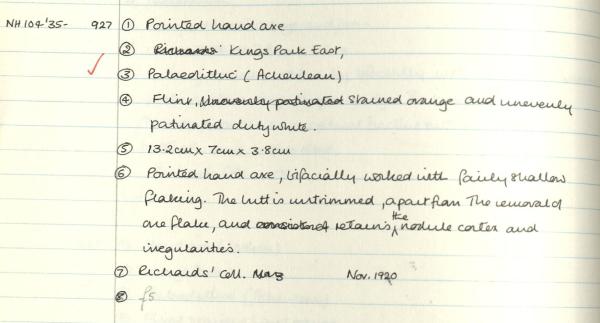 NH104-'35- 927 ① Pointed hand axe
② Richards' Kings Park East,
③ Palaeolithic (Acheulean)
④ Flint, Unevenly patinated stained orange and unevenly
patinated dirty white.
⑤ 13.2cm x 7cm x 3.8cm
⑥ Pointed hand axe, bifacially worked with fairly shallow
flaking. The butt is untrimmed, apart from The removal of
one flake, and retains the nodule cortex and
irregularities.
⑦ Richards' Coll. Nov. 1920
⑧ f5